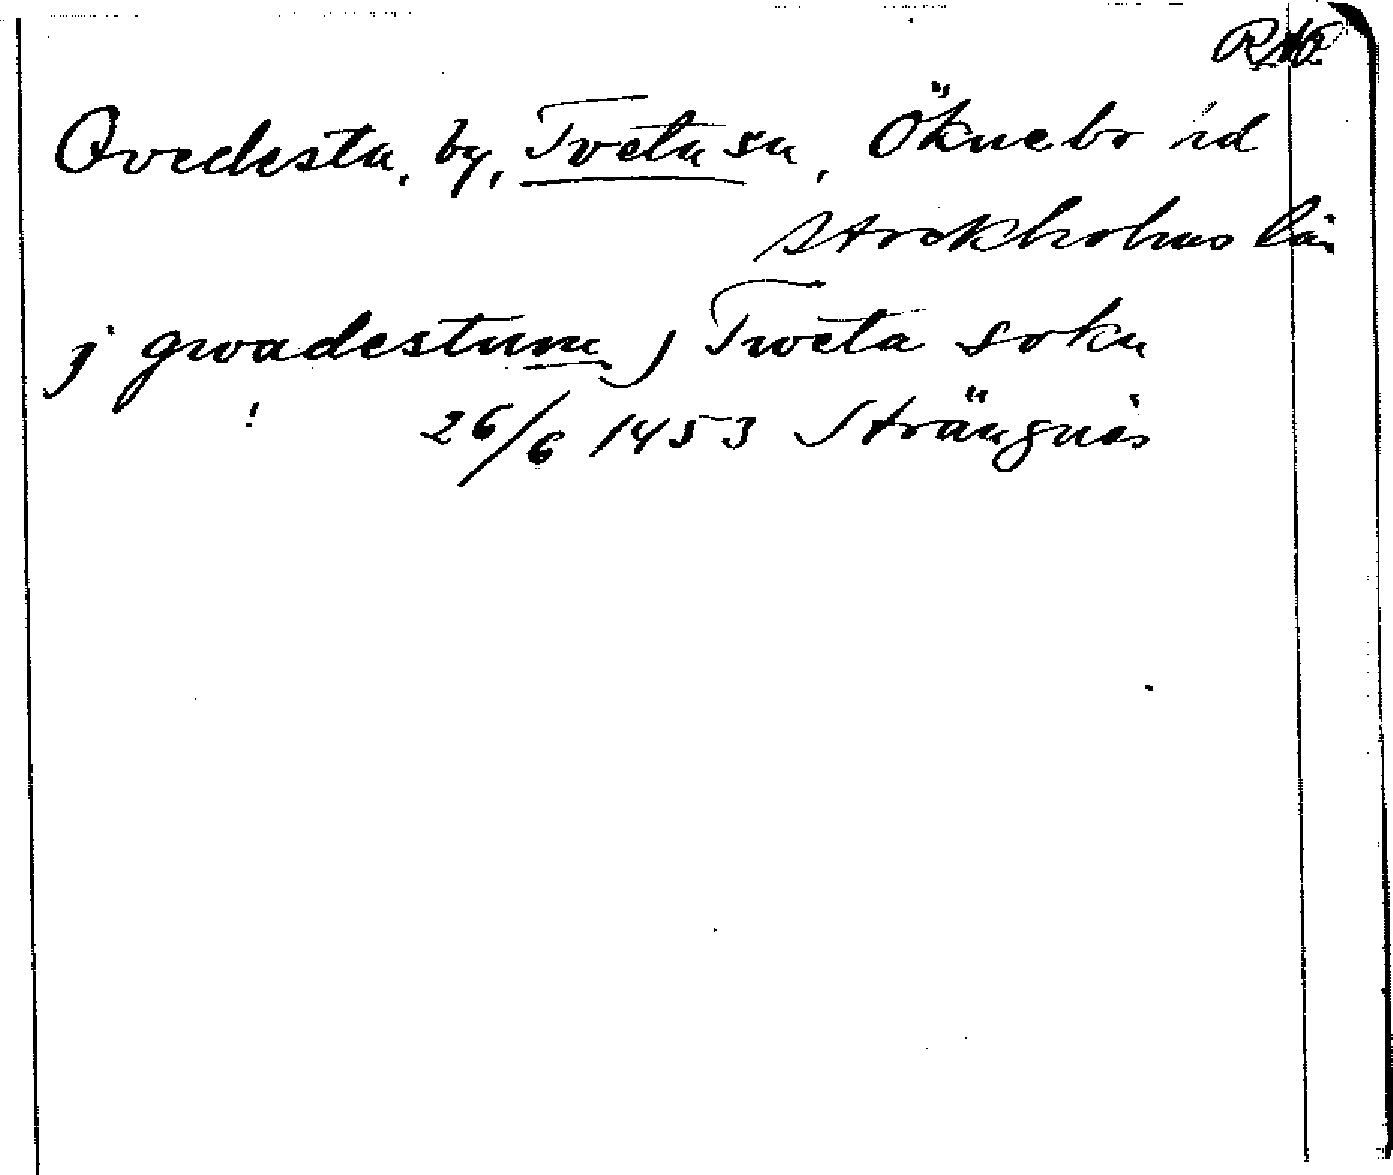 Qvedesta, by, Tveta sn, Öknebo hd
Stockholms län
j gwadestum j Tweta sokn
! 26/6 1453 Strängnäs